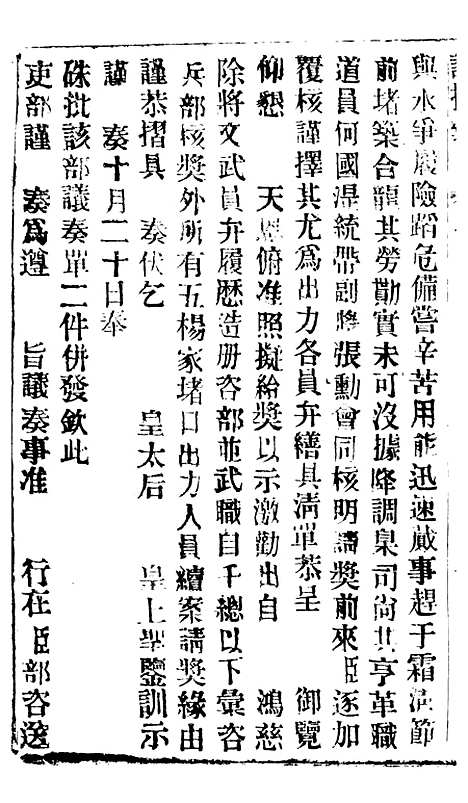 與水爭履險蹈危備嘗辛苦用能迅速蕆事趕于霜清節
前堵築合龍其勞勩實未可沒據降調臬司尚其亨革職
道員何國禔統帶副將張勳會同核明請獎前來臣逐加
覆核謹擇其尤爲出力各員弁繕具清單恭呈 御覽
仰懇 天恩俯准照擬給獎以示激勸出自 鴻慈
除將文武員弁履歷造册咨部並武職自千總以下彙咨
兵部核獎外所有五楊家堵口出力人員續案請獎緣由
謹恭摺具 奏伏乞 皇太后 皇上聖鑒訓示
謹 奏十月二十日奉
硃批該部議奏單二件併發欽此
吏部謹 奏爲遵 旨議奏事准 行在臣部咨送